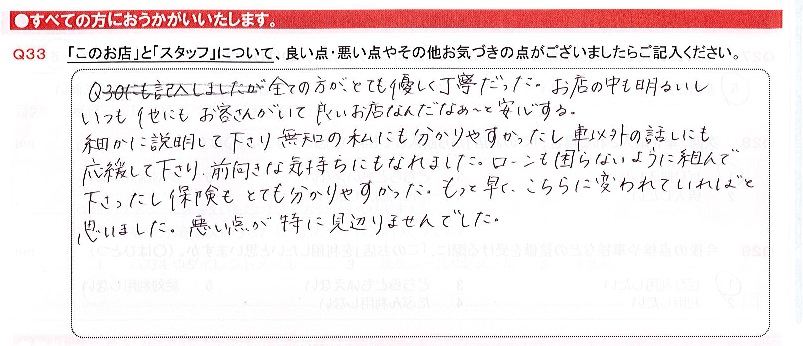 ●すべての方におうかがいいたします。
Q33 「このお店」と「スタッフ」について、良い点・悪い点やその他お気づきの点がございましたらご記入ください。
Q30にも記入しましたが全ての方がとても優しく丁寧だった。お店の中も明るいし
いつも他にもお客さんがいて良いお店なんだなぁ〜と安心する。
細かに説明して下さり無知の私にも分かりやすかったし車以外の話しにも
応援して下さり、前向きな気持ちにもなれました。ローンも困らないように組んで
下さったし保険もとても分かりやすかった。もっと早く、こちらに変われていればと
思いました。悪い点が特に見辺りませんでした。